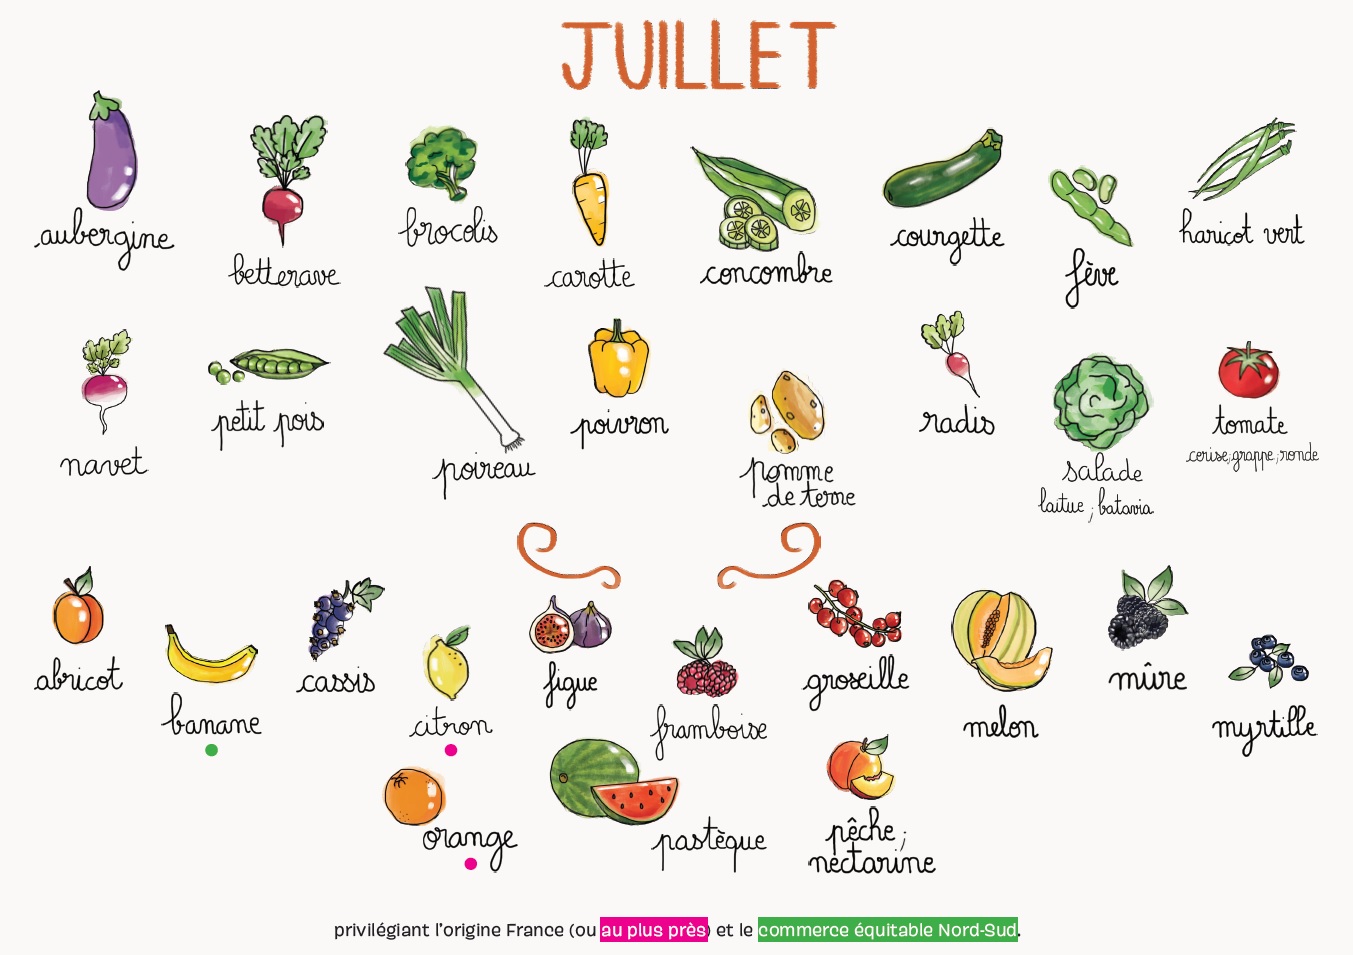 JUILLET
aubergine
betterave
brocolis
carotte
concombre
courgette
fève
haricot vert
navet
petit pois
poireau
poivron
pomme
de terre
radis
salade
laitue ; batavia
tomate
cerise; grappe ; ronde
abricot
banane
cassis
citron
figue
framboise
groseille
melon
mûre
myrtille
orange
pastèque
pêche ;
nectarine
privilégiant l'origine France (ou au plus près) et le commerce équitable Nord-Sud.